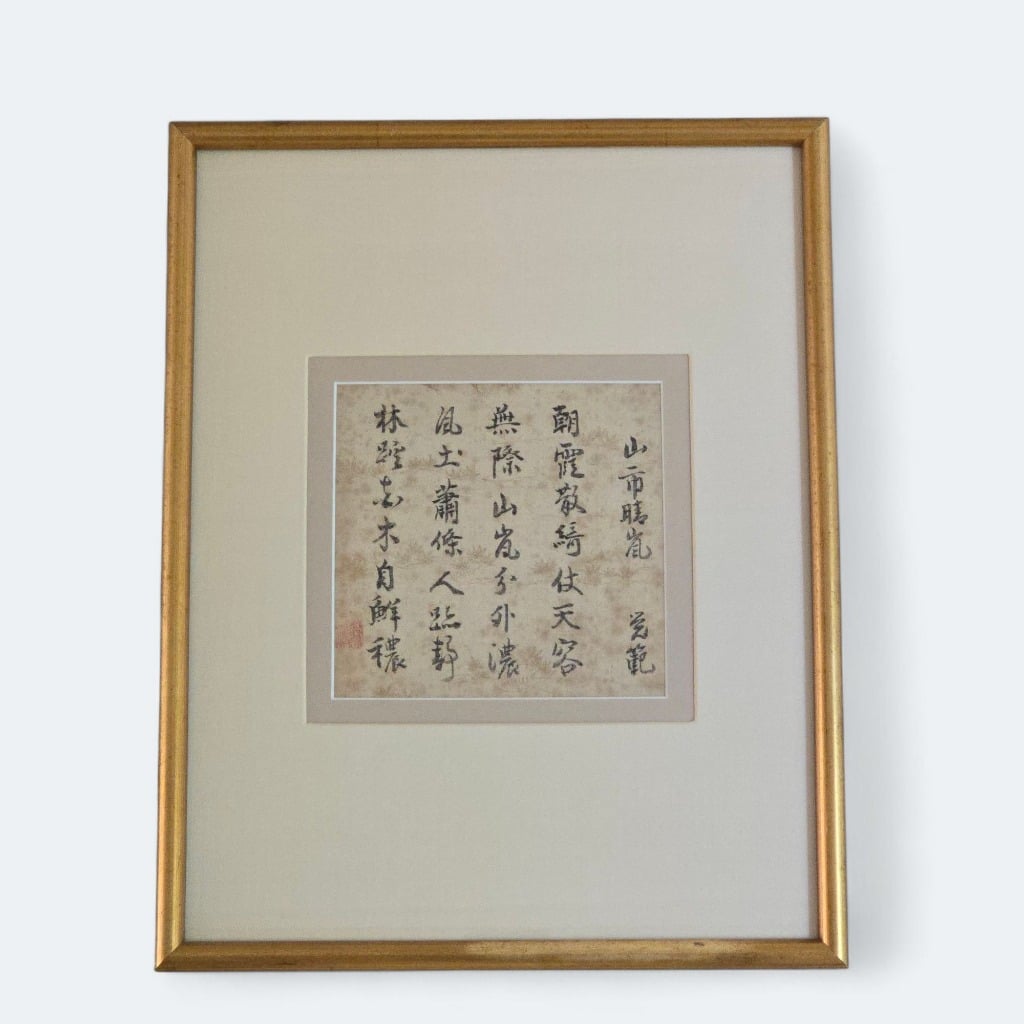 山市晴嵐 覚範
朝霞散綺仗天容
無際山嵐分外濃
風土蕭條人跡静
林蹊花木自鮮穠